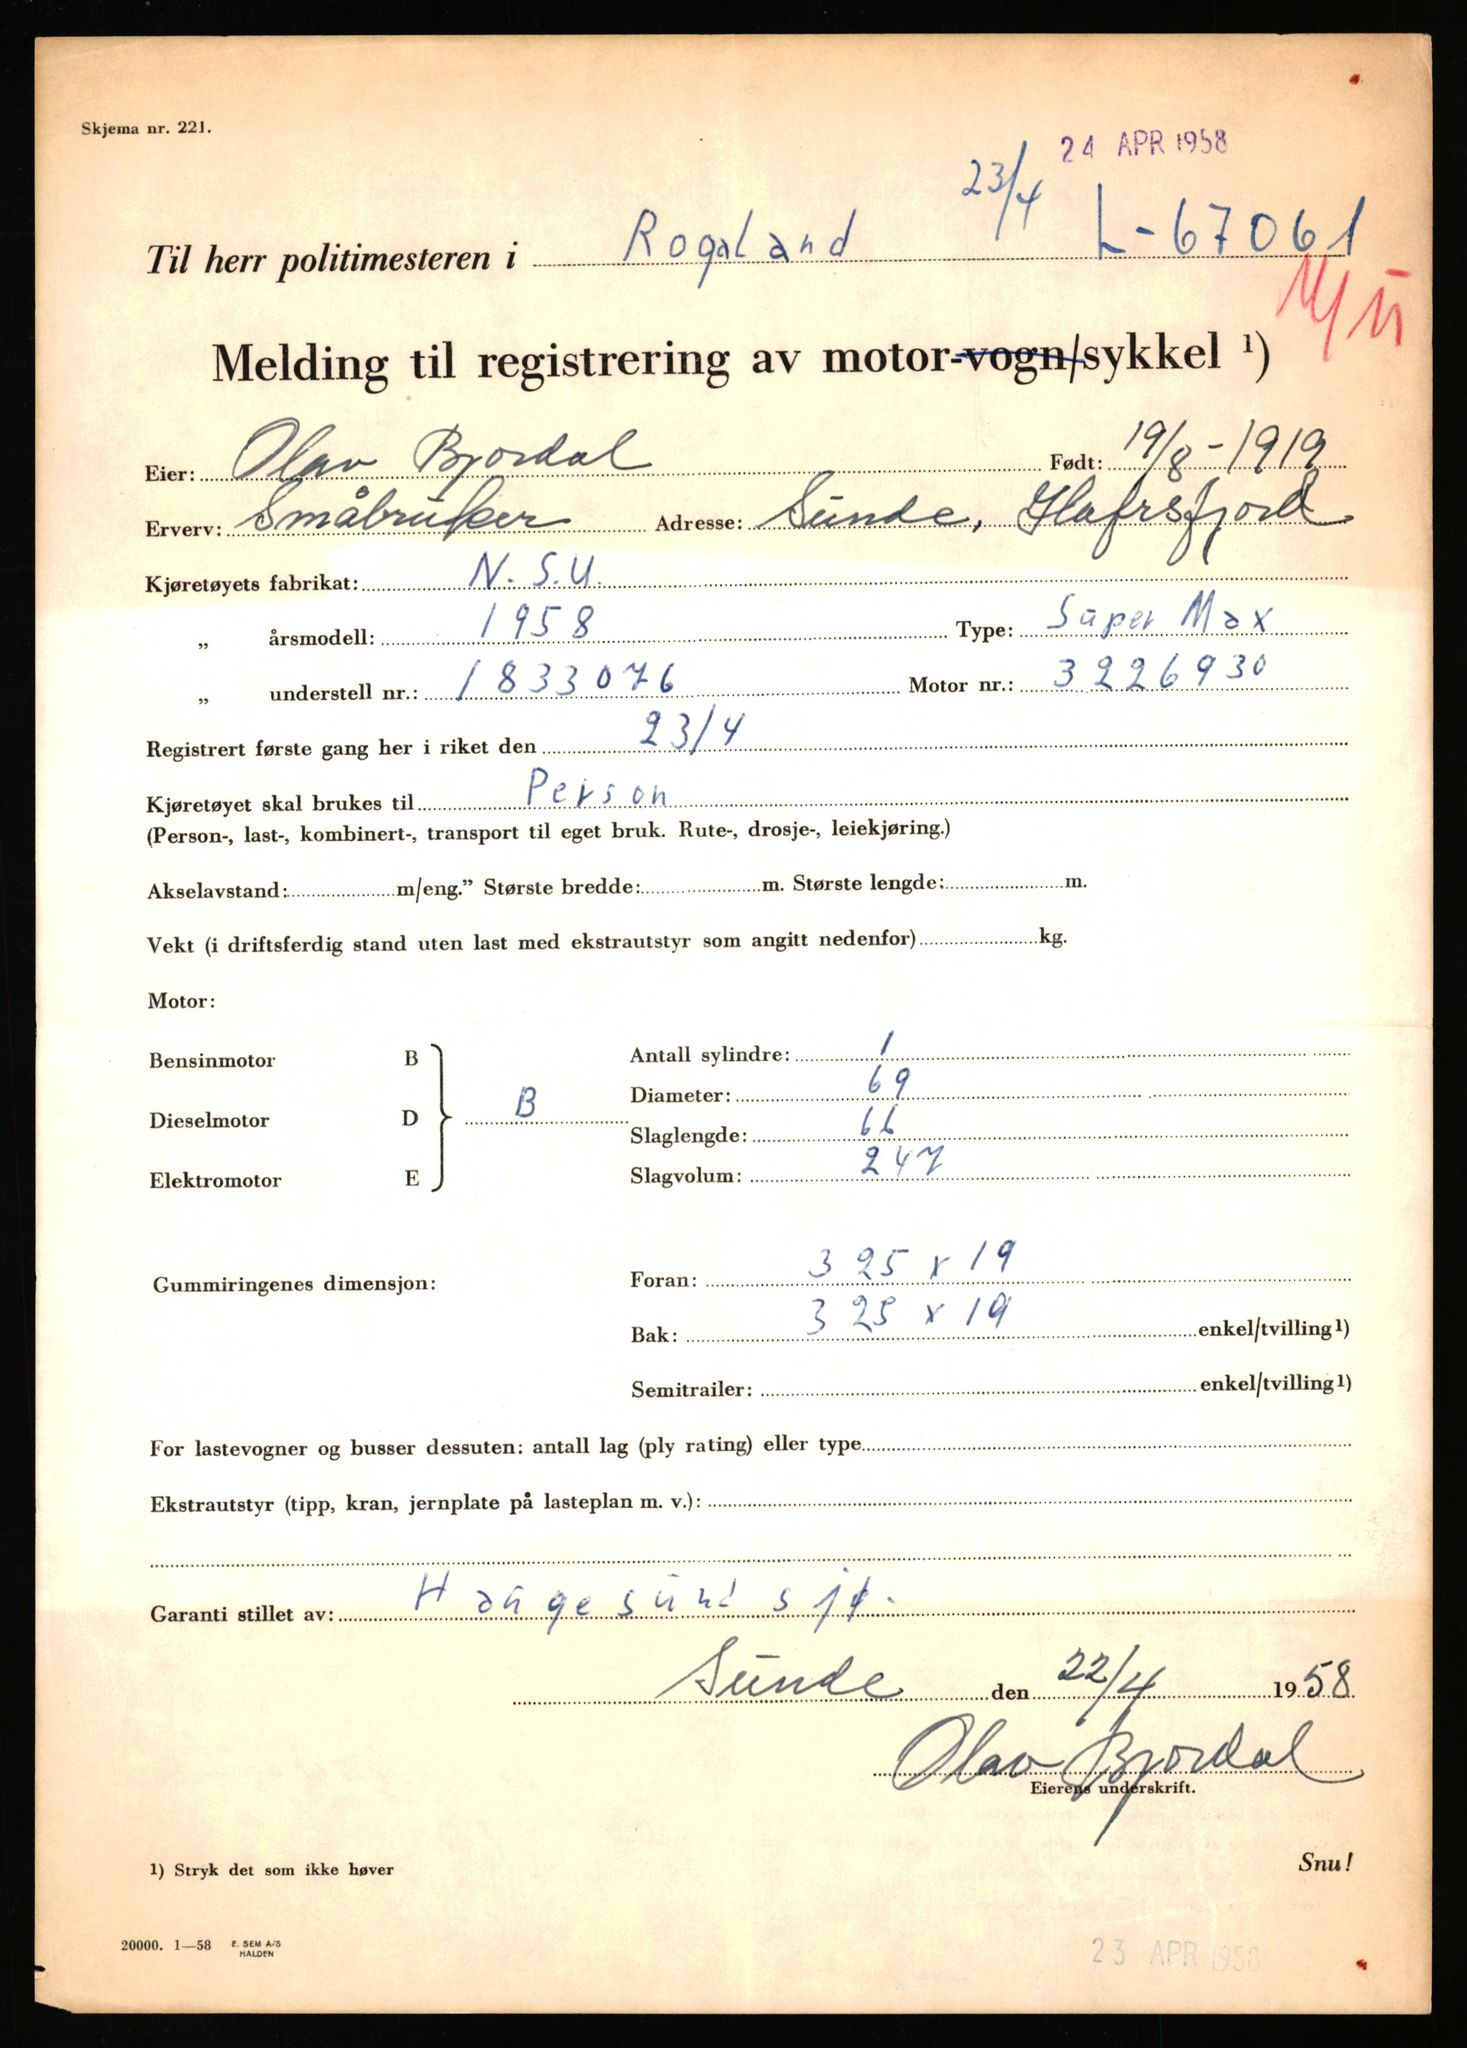 Skjema nr. 221.
24 APR 1958
23/4
Til herr politimesteren i Rogaland L-67061
Melding til registrering av motor-vogn/sykkel ¹)
Eier: Olav Bjordal Født: 19/8-1919
Erverv: Småbruker Adresse: Sunde, Hafrsfjord
Kjøretøyets fabrikat: N.S.U.
„ årsmodell: 1958 Type: Super Max
„ understell nr.: 1833076 Motor nr.: 3226930
Registrert første gang her i riket den 23/4
Kjøretøyet skal brukes til Person
(Person-, last-, kombinert-, transport til eget bruk. Rute-, drosje-, leiekjøring.)
Akselavstand: m/eng.” Største bredde: m. Største lengde: m.
Vekt (i driftsferdig stand uten last med ekstrautstyr som angitt nedenfor) kg.
Motor:
Bensinmotor B
Dieselmotor D B
Elektromotor E
Antall sylindre: 1
Diameter: 69
Slaglengde: 66
Slagvolum: 247
Gummiringenes dimensjon: Foran: 3 25 x 19
Bak: 3 25 x 19 enkel/tvilling¹)
Semitrailer: enkel/tvilling¹)
For lastevogner og busser dessuten: antall lag (ply rating) eller type
Ekstrautstyr (tipp, kran, jernplate på lasteplan m. v.):
Garanti stillet av: Haugesund sjø.
Sunde den 22/4 1958
Olav Bjordal
Eierens underskrift.
1) Stryk det som ikke høver
Snu!
20000. 1—58 E. SEM A/S
HALDEN
23 APR 1958